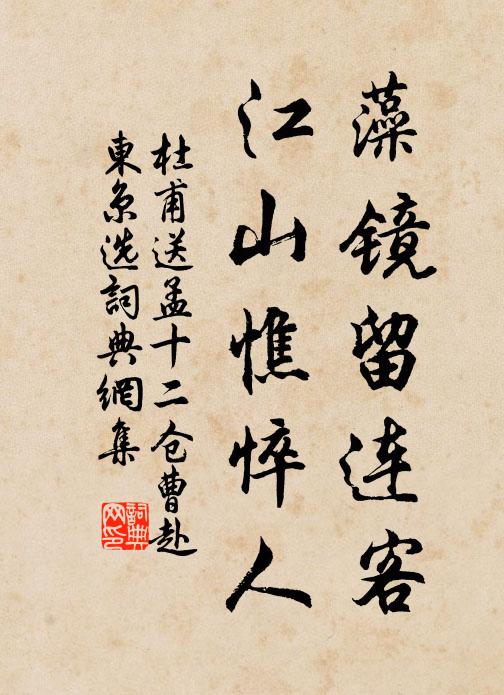 藻镜留连客
江山憔悴人
杜甫送孟十二仓曹赴
東京选詞典網集
詞典网印